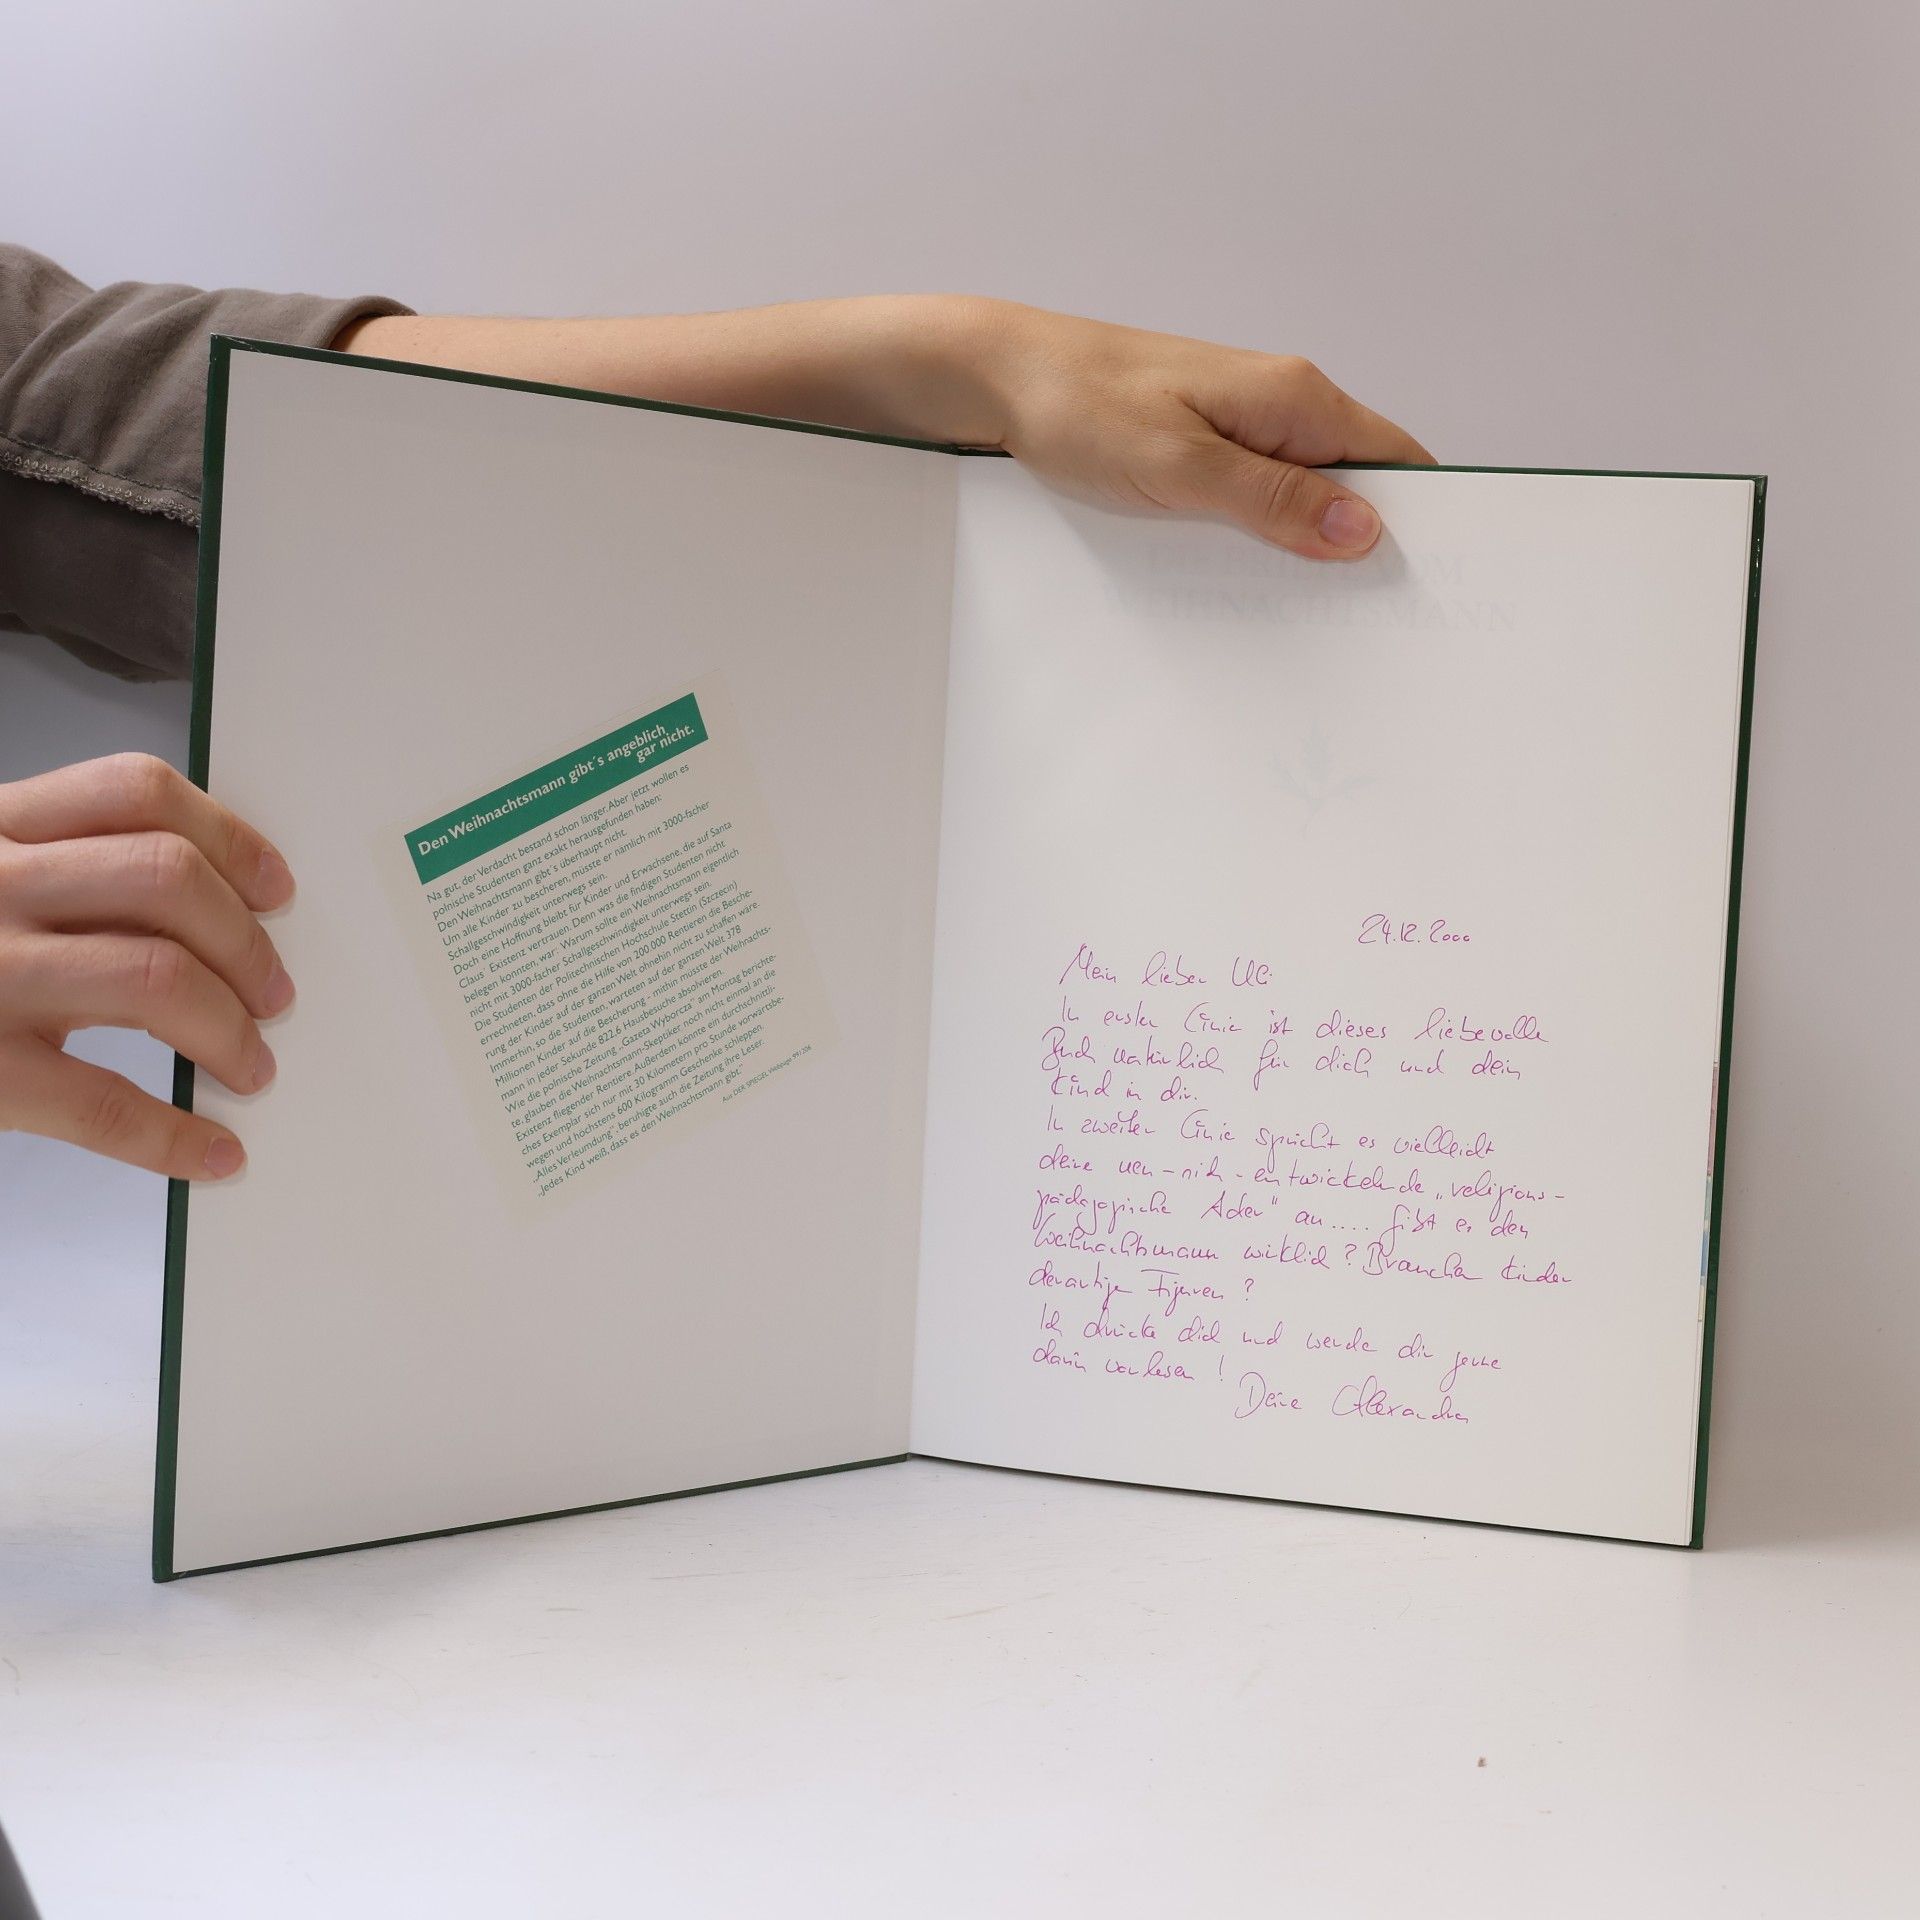 Den Weihnachtsmann gibt´s angeblich
gar nicht.
Na gut, der Verdacht bestand schon länger. Aber jetzt wollen es
polnische Studenten ganz exakt herausgefunden haben:
Den Weihnachtsmann gibt´s überhaupt nicht.
Um alle Kinder zu bescheren, müsste er nämlich mit 3000-facher
Schallgeschwindigkeit unterwegs sein.
Doch eine Hoffnung bleibt für Kinder und Erwachsene, die auf Santa
Claus´ Existenz vertrauen. Denn was die findigen Studenten nicht
belegen konnten, war: Warum sollte ein Weihnachtsmann eigentlich
nicht mit 3000-facher Schallgeschwindigkeit unterwegs sein.
Die Studenten der Politechnischen Hochschule Stettin (Szczecin)
errechneten, dass ohne die Hilfe von 200 000 Rentieren die Besche-
rung der Kinder auf der ganzen Welt ohnehin nicht zu schaffen wäre.
Immerhin, so die Studenten, warteten auf der ganzen Welt 378
Millionen Kinder auf die Bescherung - mithin müsste der Weihnachts-
mann in jeder Sekunde 822,6 Hausbesuche absolvieren.
Wie die polnische Zeitung „Gazeta Wyborcza" am Montag berichte-
te, glauben die Weihnachtsmann-Skeptiker noch nicht einmal an die
Existenz fliegender Rentiere. Außerdem könnte ein durchschnittli-
ches Exemplar sich nur mit 30 Kilometern pro Stunde vorwärtsbe-
wegen und höchstens 600 Kilogramm Geschenke schleppen.
„Alles Verleumdung", beruhigte auch die Zeitung ihre Leser.
„Jedes Kind weiß, dass es den Weihnachtsmann gibt."
Aus DER SPIEGEL Webpage 99/206
DIE BRIEFE VOM
WEIHNACHTSMANN
24.12.2000
Mein lieber Uli
In erster Linie ist dieses liebevolle
Buch natürlich für dich und dein
Kind in dir.
In zweiter Linie spricht es vielleicht
deine neu-sich-entwickelnde „religions-
pädagogische Ader" an.... gibt es den
Weihnachtsmann wirklich? Brauchen Kinder
derartige Figuren?
Ich drücke dich und werde dir gerne
darin vorlesen!
Deine Alexandra